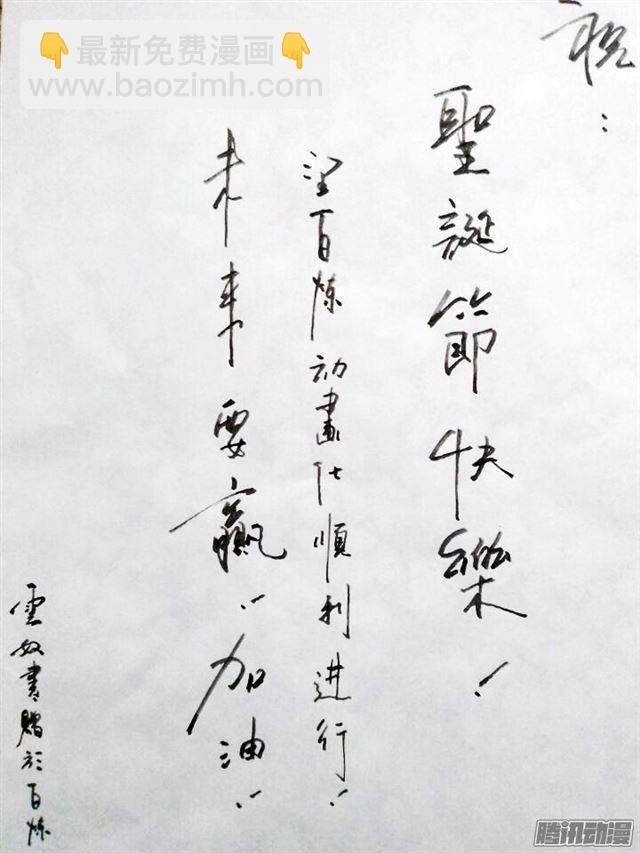 祝：
聖誕節快樂！
望百炼动畫化順利进行！
未来要赢！加油！
雲奴書赠於百炼
👇最新免费漫画👇
www.baozimh.com
腾讯动漫